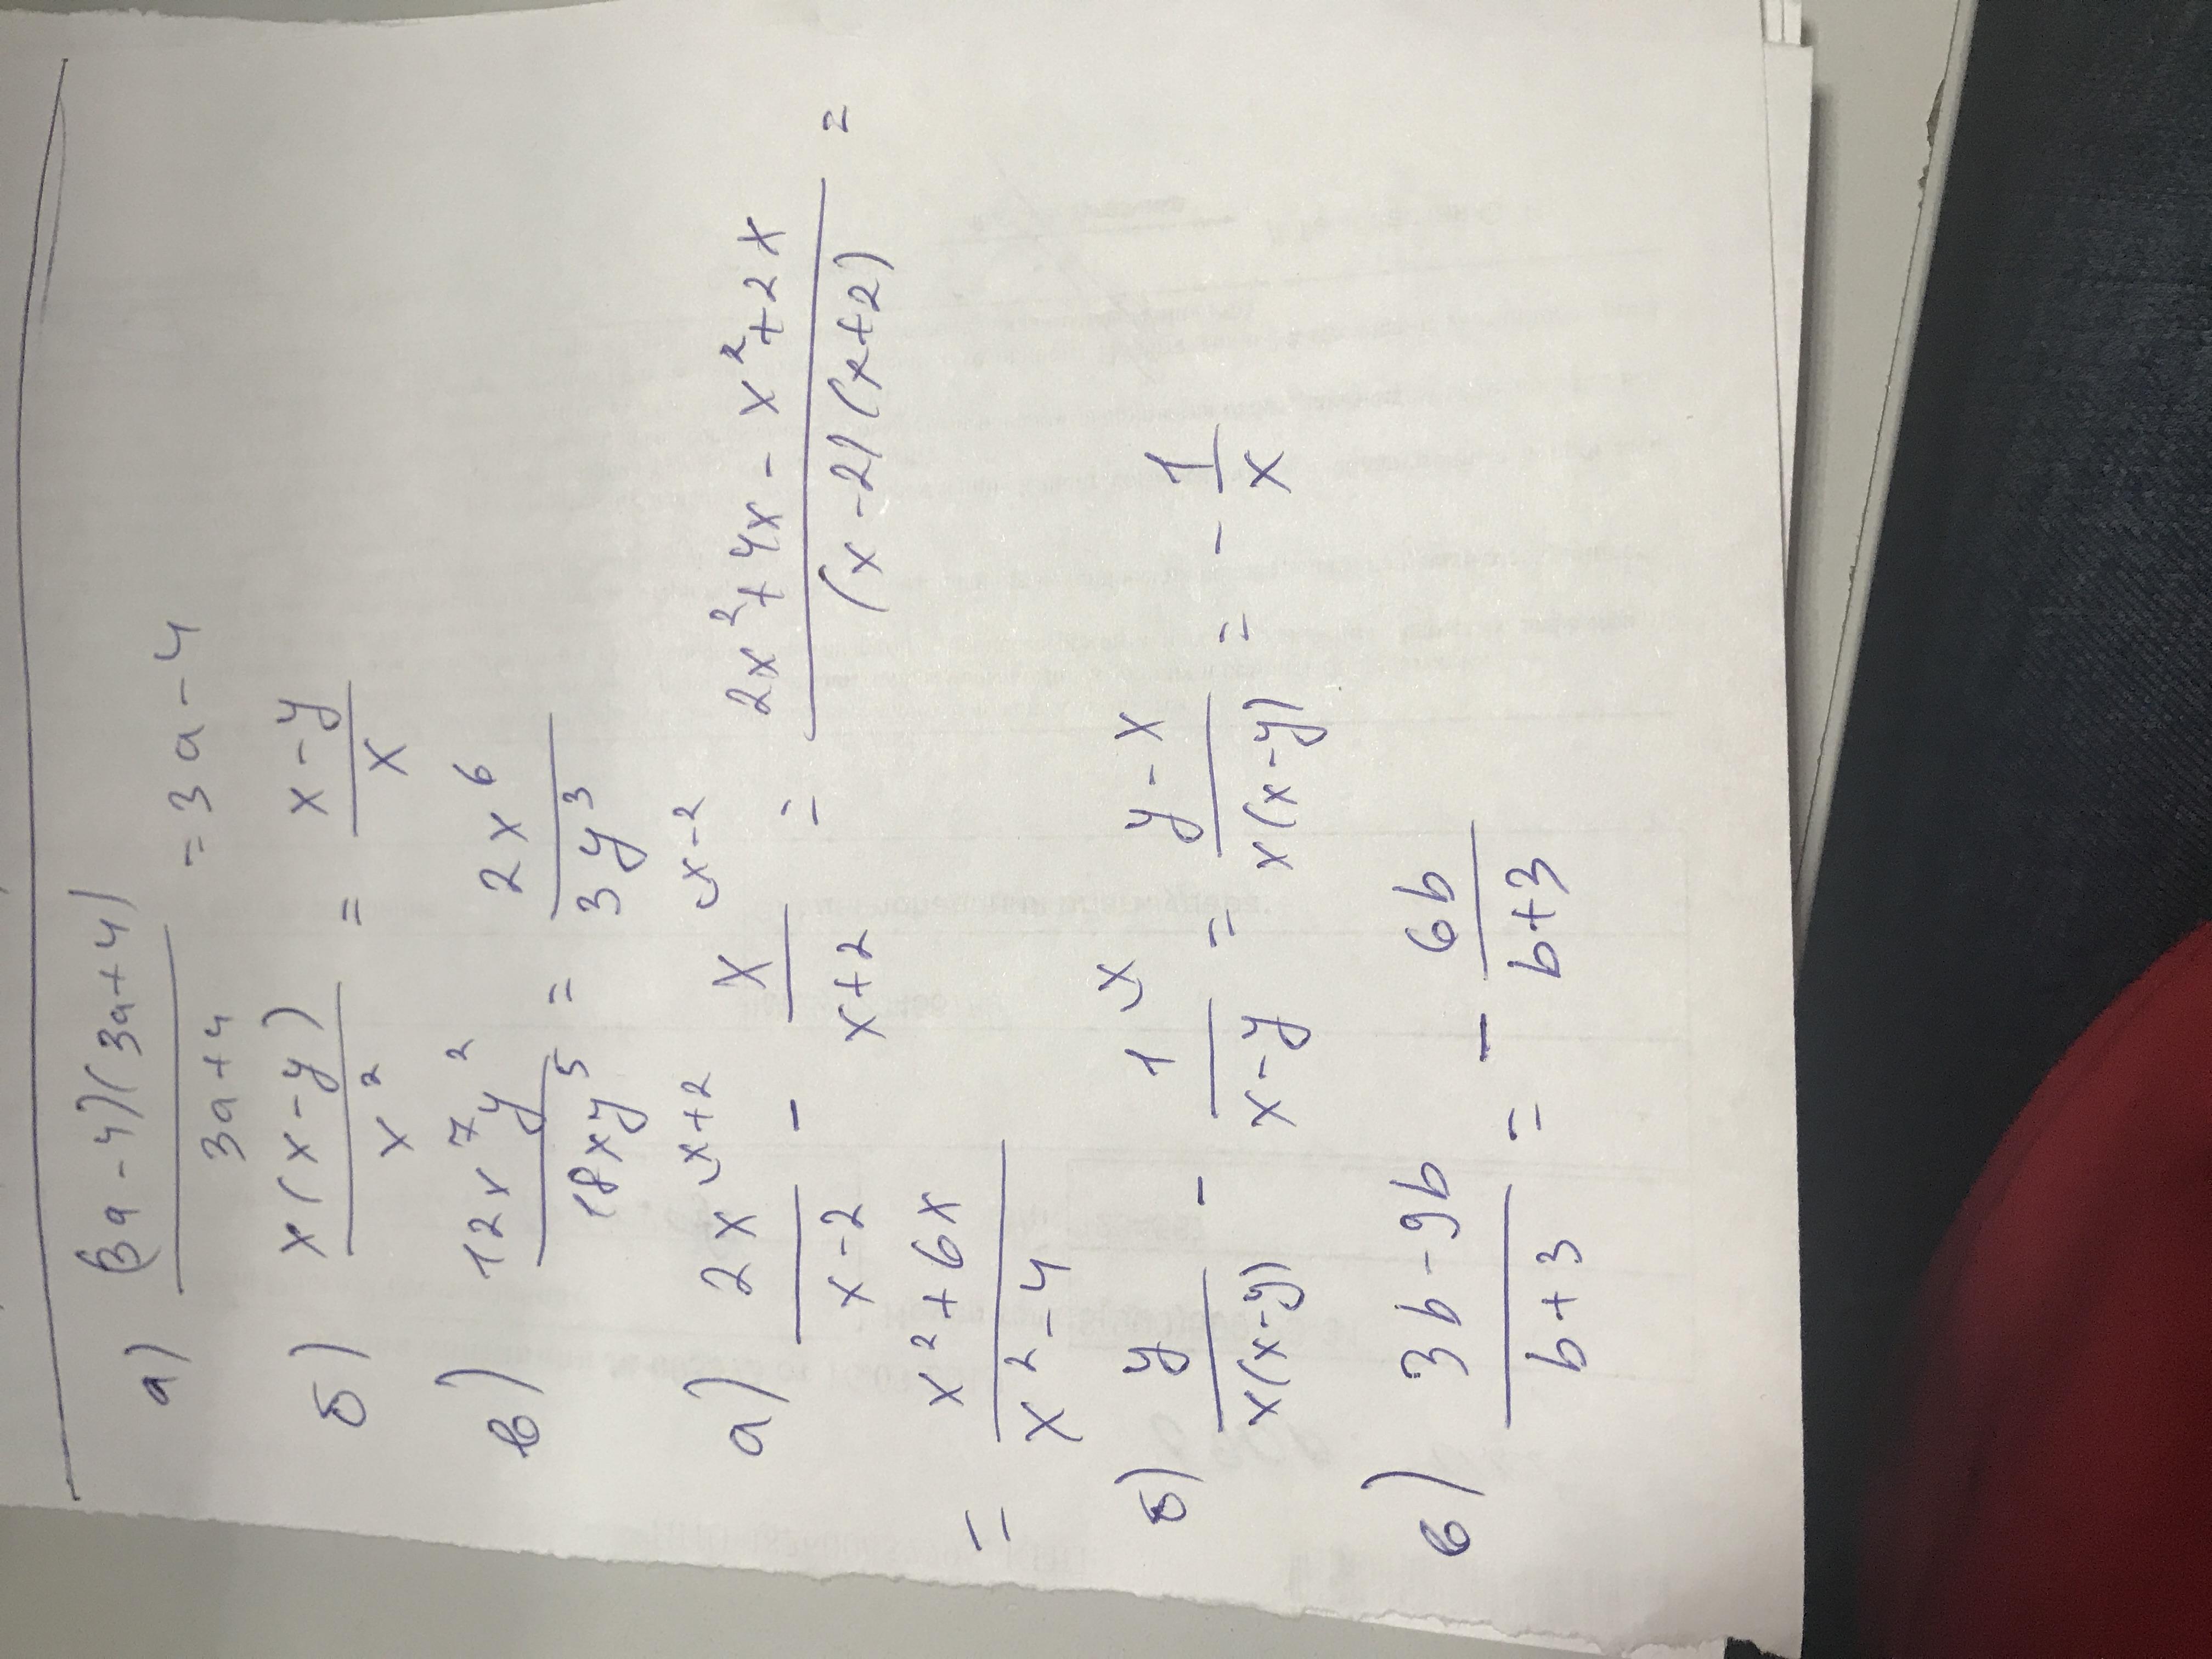 а) (3a-4)(3a+4)/3a+4 = 3a-4
б) x(x-y)/x² = x-y/x
в) 12x⁷y²/18xy⁵ = 2x⁶/3y³
а) 2x/x-2 ^(x+2) - x/x+2 ^(x-2) = 2x²+4x-x²+2x/(x-2)(x+2) =
= x²+6x/x²-4
б) y/x(x-y) - 1/x-y ^x = y-x/x(x-y) = - 1/x
в) 3b-9b/b+3 = - 6b/b+3